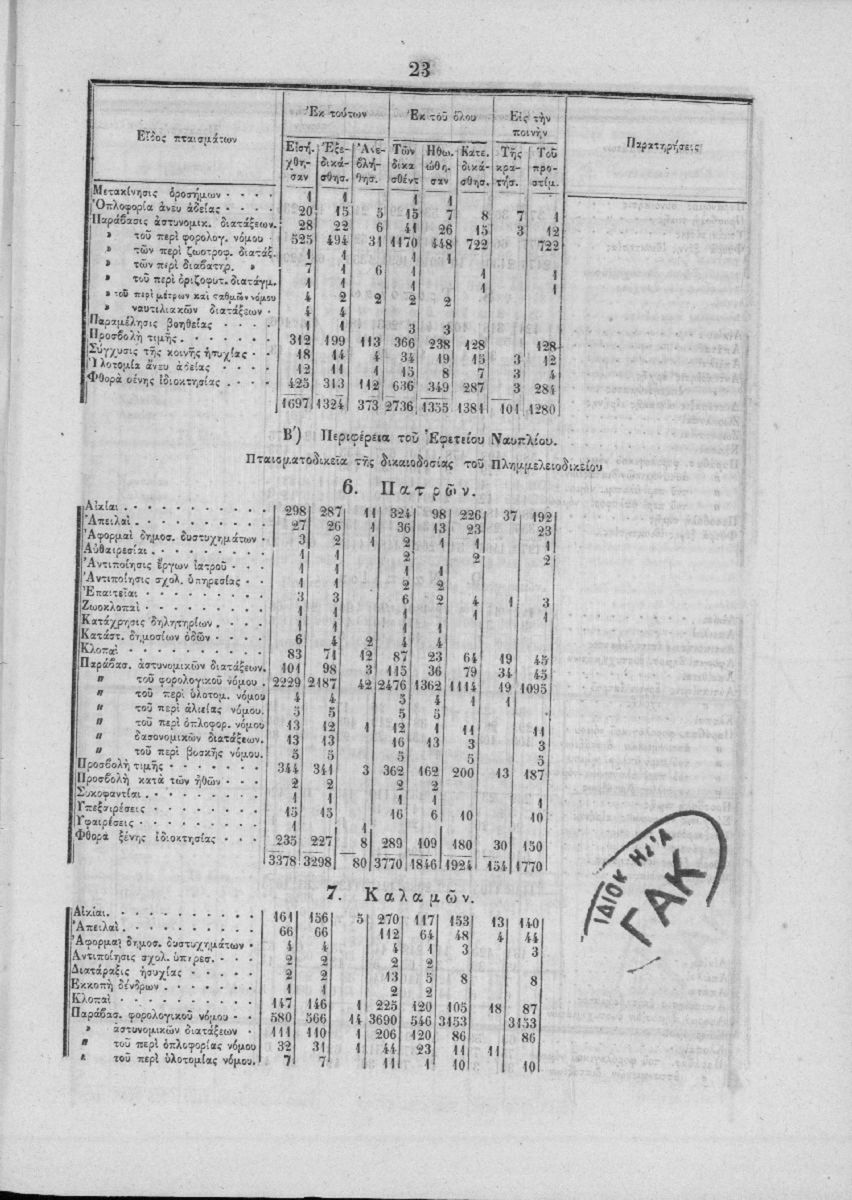 23
Εἶδος πταισμάτων Ἐκ τούτων Ἐκ τοῦ ὅλου Εἰς τὴν ποινὴν Παρατηρήσεις
Εἰσή- Ἐξε- Ἀνε- Τῶν Ἠθω- Κατε- Τῆς Τοῦ
χθη- δικά- βλή- δικα- ώθη- δικά- κρα- προ-
σαν σθησ. θησ. σθέντ σαν σθησ. τήσ. στίμ.
Μετακίνησις ὁροσήμων 1 1 1 1
Ὁπλοφορία ἄνευ ἀδείας 20 15 5 15 7 8 7 1
Παράβασις ἀστυνομικ. διατάξεων. 28 22 6 41 26 15 3 12
» τοῦ περὶ φορολογ. νόμου 525 494 31 1170 448 722 722
» τῶν περὶ ζωοτροφ. διατάξ. 1 1 1 1
» τῶν περὶ διαβατηρ. » 7 1 6 1 1 1
» τοῦ περὶ ὁριζοφυτ. διατάγμ. 1 1 1 1 1
» τοῦ περὶ μέτρων καὶ σταθμῶν νόμου 4 2 2 2 2
» ναυτιλιακῶν διατάξεων 4 4
Παραμέλησις βοηθείας 1 1 3 3
Προσβολὴ τιμῆς 312 199 113 366 238 128 128
Σύγχυσις τῆς κοινῆς ἡσυχίας 18 14 4 34 19 15 3 12
Ὑλοτομία ἄνευ ἀδείας 12 11 1 15 8 7 3 4
Φθορὰ ξένης ἰδιοκτησίας 425 313 112 636 349 287 3 284
1697 1324 373 2736 1355 1381 101 1280
Β΄) Περιφέρεια τοῦ Ἐφετείου Ναυπλίου.
Πταισματοδικεῖα τῆς δικαιοδοσίας τοῦ Πλημμελειοδικείου
6. Πατρῶν.
Αἰκίαι 298 287 11 324 98 226 37 192
Ἀπειλαὶ 27 26 1 36 13 23 23
Ἀφορμαὶ δημοσ. δυστυχημάτων 3 2 1 2 1 1 1
Αὐθαιρεσίαι 1 1 2 2 2
Ἀντιποίησις ἔργων ἰατροῦ 1 1 1 1
Ἀντιποίησις σχολ. ὑπηρεσίας 1 1 2 2
Ἐπαιτεῖαι 3 3 6 2 4 1 3
Ζωοκλοπαὶ 1 1 1 1 1
Κατάχρησις δηλητηρίων 1 1 1 1
Κατάστ. δημοσίων ὁδῶν 6 4 2 4 4
Κλοπαὶ 83 71 12 87 23 64 19 45
Παράβασ. ἀστυνομικῶν διατάξεων. 101 98 3 115 36 79 34 45
» τοῦ φορολογικοῦ νόμου 2229 2187 42 2476 1362 1114 19 1095
» τοῦ περὶ ὑλοτομ. νόμου 4 4 5 4 1 1
» τοῦ περὶ ἁλιείας νόμου. 5 5 5 5
» τοῦ περὶ ὁπλοφορ. νόμου 13 12 1 12 1 11 11
» δασονομικῶν διατάξεων. 13 13 16 13 3 3
» τοῦ περὶ βοσκῆς νόμου. 5 5 5 5 5
Προσβολὴ τιμῆς 344 341 3 362 162 200 13 187
Προσβολὴ κατὰ τῶν ἠθῶν 2 2 2 2
Συκοφαντίαι 1 1 1 1 1
Ὑπεξαιρέσεις 15 15 16 6 10 10
Ὑφαιρέσεις 1 1
Φθορὰ ξένης ἰδιοκτησίας 235 227 8 289 109 180 30 150
3378 3298 80 3770 1846 1924 154 1770
7. Καλαμῶν.
Αἰκίαι 161 156 5 270 117 153 13 140
Ἀπειλαὶ 66 66 112 64 48 4 44
Ἀφορμαὶ δημοσ. δυστυχημάτων 4 4 4 1 3 3
Ἀντιποίησις σχολ. ὑπηρεσ. 2 2 2 2
Διατάραξις ἡσυχίας 2 2 13 5 8 8
Ἐκκοπὴ δένδρων 1 1 2 2
Κλοπαὶ 147 146 1 225 120 105 18 87
Παράβασ. φορολογικοῦ νόμου 580 566 14 3690 546 3153 3153
» ἀστυνομικῶν διατάξεων 111 110 1 206 120 86 86
» τοῦ περὶ ὁπλοφορίας νόμου 32 31 1 44 23 11 11
» τοῦ περὶ ὑλοτομίας νόμου. 7 7 11 1 10 10
ΙΔΙΟΚ Η/Α
ΓΑΚ